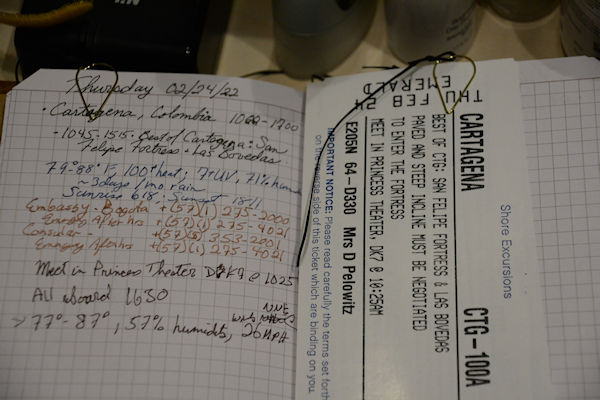 Thursday 02/24/22
• Cartagena, Colombia 1000-1700
- 1045-1515 - Best of Cartagena: San
Felipe Fortress + Las Bovedas
79°-88° F, 100° heat; 7 UV, 71% humid
~3days/mo. rain
Sunrise 618, Sunset 1811
Embassy - Bogota +(57)(1) 275-2000
Emerg After hrs +(57)(1) 275-4021
Consular - +(57)(5) 353-2001
Emerg Afterhrs +(57)(1) 275-4021
Meet in Princess Theater DK7 @ 1025
All aboard 1630
→ 77°-87°, 57% humidity, 26 MPH
NNE
winds
THU FEB 24
EMERALD
Shore Excursions
CARTAGENA CTG-100A
BEST OF CTG: SAN FELIPE FORTRESS & LAS BOVEDAS
PAVED AND STEEP INCLINE MUST BE NEGOTIATED
TO ENTER THE FORTRESS
MEET IN PRINCESS THEATER, DK7 @ 10:25AM
E205N 64-D330 Mrs D Pelowitz
IMPORTANT NOTICE: Please read carefully the terms set forth
on the reverse side of this ticket which are binding on you.